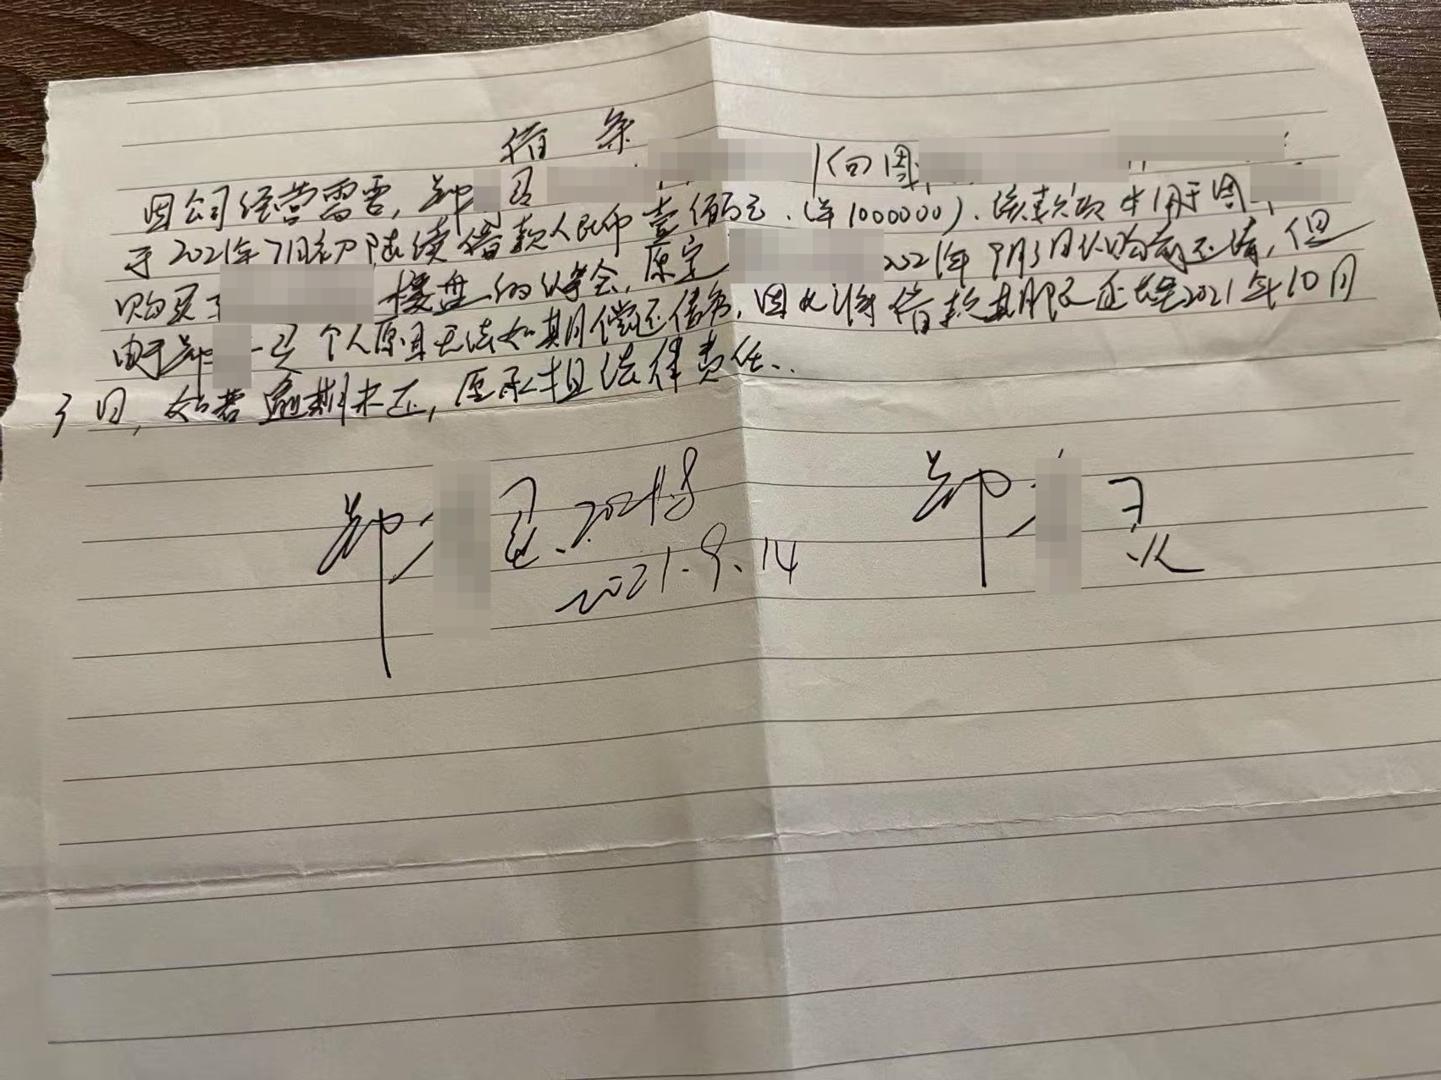 借条
因公司经营需要，郑 向周
于2021年7月初陆续借款人民币壹佰万元.(¥1000000).该款项用于周
购买了 楼盘的 原定 2021年9月3日 前还清,但
由于郑 个人原因无法如期偿还债务,因此将借款期限延长至2021年10月
3日,如若逾期未还,愿承担法律责任..
郑
2021.9.14
郑